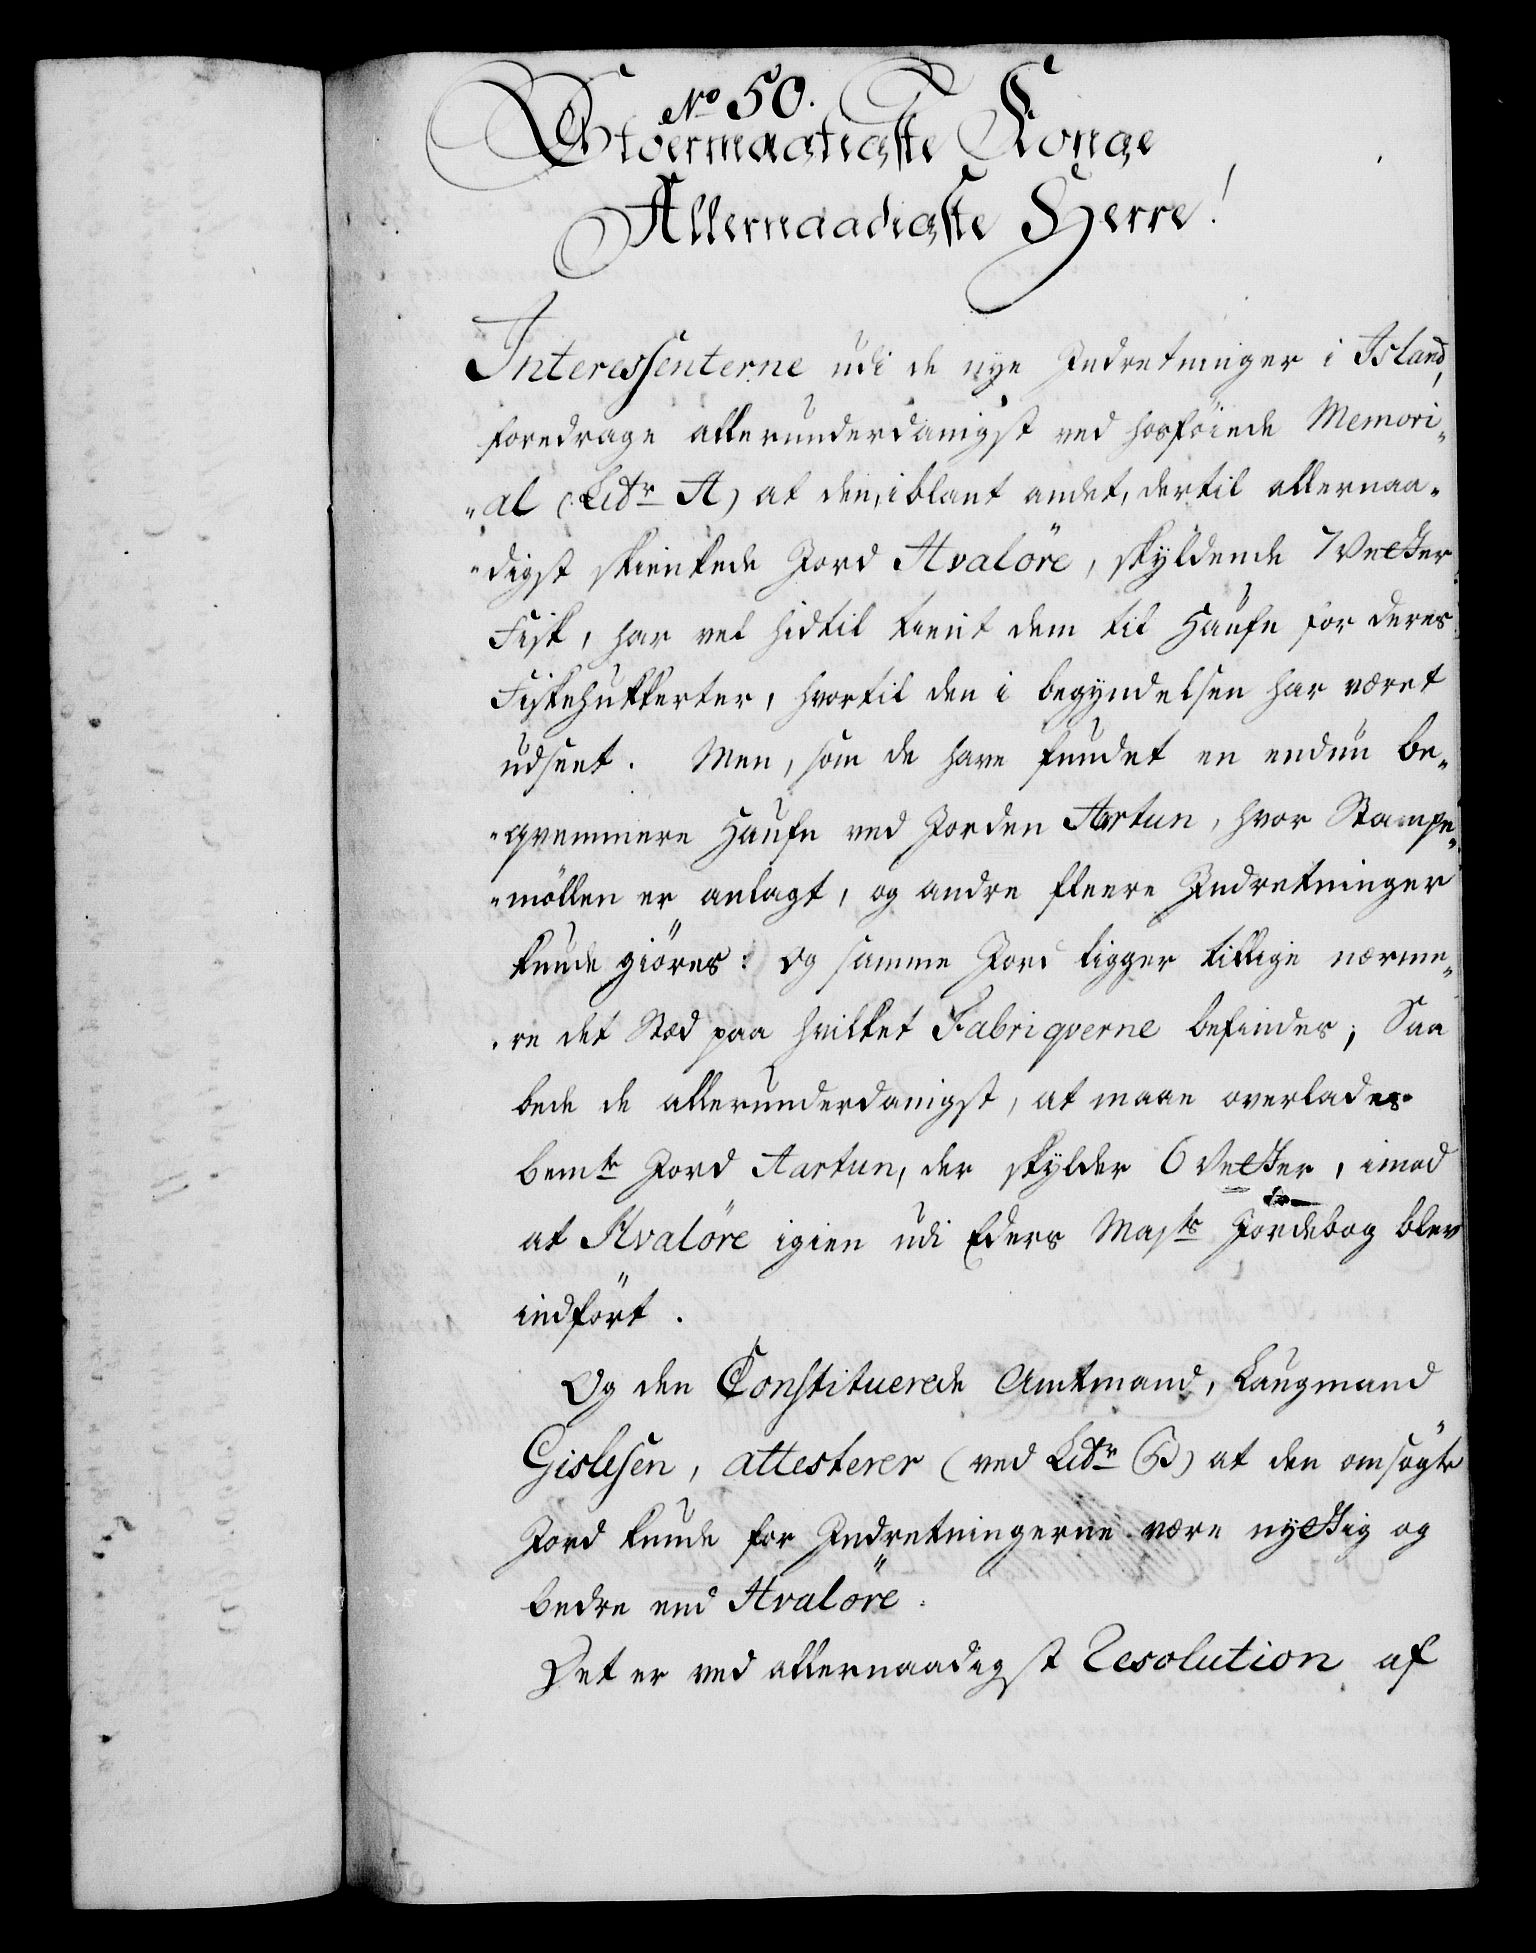 No 50.
Stormægtigste Konge
Allernaadigste Herre!
Interessenterne udi de nye Indretninger i Island,
foredrage allerunderdanigst ved hosföiede Memori„
„al (Litr A) at den, iblant andet, dertil allernaa„
„digst skienkede Jord Hvalöre, skyldende 7 Vetter
Fisk, har vel hidtil tient dem til Haufn for deres
Fiskehukkerter, hvortil den i begyndelsen har været
udseet. Men, som de have fundet en endnu be„
„qvemmere Haufn ved Jorden Artun, hvor Stampe„
„möllen er anlagt, og andre fleere Indretninger
kunde giöres: Og samme Jord ligger tillige nærme„
„re det Stæd paa hvilket Fabriqverne befindes; Saa
bede de allerunderdanigst, at maae overlades
bemte Jord Aartun, der skylder 6 Vetter, imod
at Hvalöre igien udi Eders Majts Jordebog blev
indfört.
Og den Constituerede Amtmand, Laugmand
Gislesen, attesterer (ved Litr B) at den omsögte
Jord kunde for Indretningerne være nyttig og
bedre end Hvalöre.
Det er ved allernaadigst Resolution af